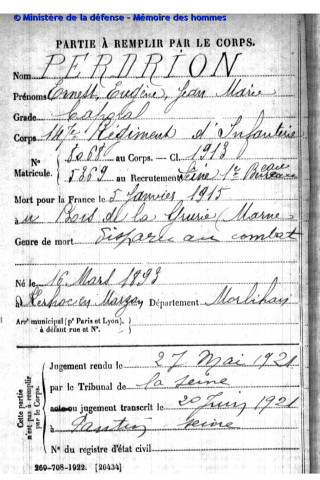 © Ministère de la défense - Mémoire des hommes
PARTIE À REMPLIR PAR LE CORPS.
Nom PERDRION
Prénoms Ernest, Eugène, Jean Marie
Grade Caporal
Corps 147e Régiment d'Infanterie
N° 8068 au Corps. — Cl. 1913
Matricule. 5369 au Recrutement Seine 1er Bureau
Mort pour la France le 5 Janvier 1915
à au Bois de la Grurie (Marne)
Genre de mort Disparu au combat
Né le 16 Mars 1893
à en Marzan Département Morbihan
Arrt municipal (pr Paris et Lyon),
à défaut rue et N°.
Cette partie
n'est pas à remplir
par le Corps.
Jugement rendu le 27 Mai 1921
par le Tribunal de la Seine
acte ou jugement transcrit le 20 Juin 1921
à Pantin Seine
N° du registre d'état civil
269-708-1922. [26434]